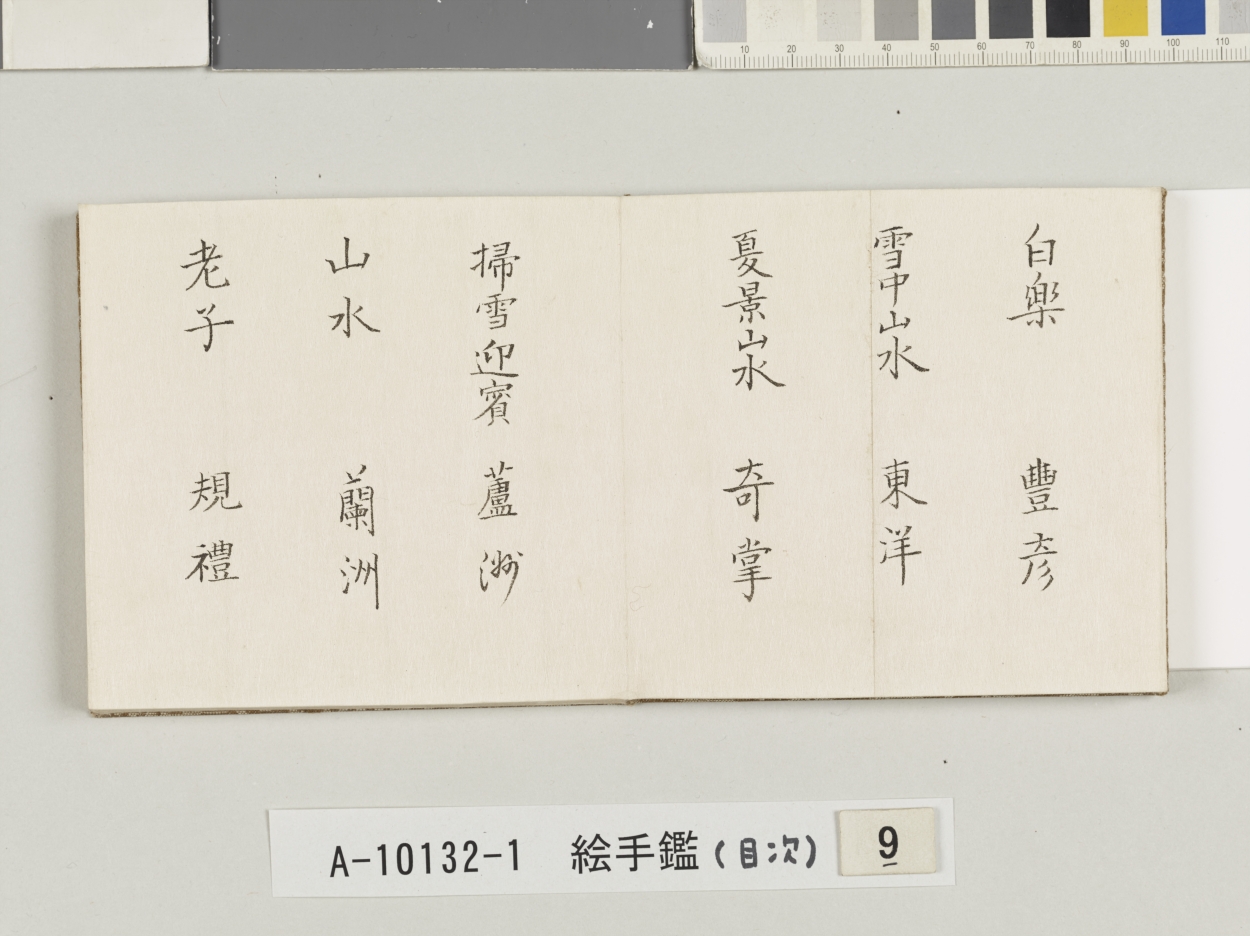 10 20 30 40 50 60 70 80 90 100 110
白楽 豐彦
雪中山水 東洋
夏景山水 奇掌
掃雪迎賓 蘆洲
山水 蘭洲
老子 規禮
A-10132-1 絵手鑑(目次) 9